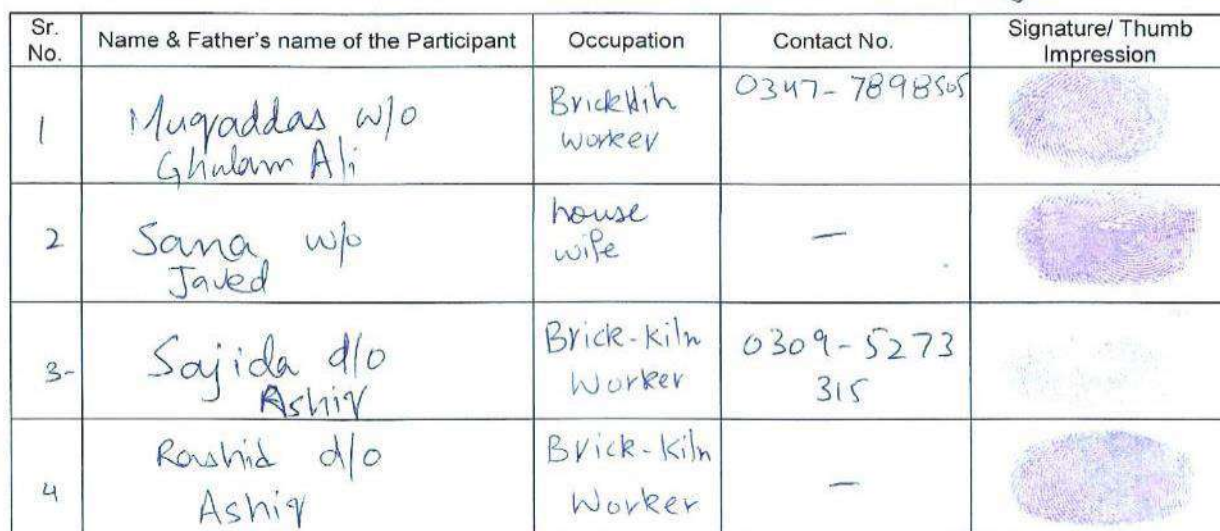 Sr. No.
Name & Father's name of the Participant
Occupation
Contact No.
Signature/ Thumb Impression
1
Muqaddas w/o
Ghulam Ali
Brick Kiln
worker
0347-7898505
2
Sana w/o
Javed
house
wife
—
3-
Sajida d/o
Ashiq
Brick-Kiln
Worker
0309-5273
315
4
Rashid d/o
Ashiq
Brick-Kiln
Worker
—